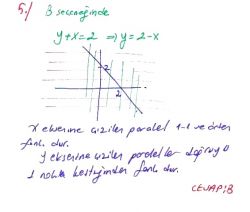 5./ B seçeneğinde
y+x=2 ⇒ y=2-x
2
2
x eksenine çizilen paralel 1-1 ve örten
fonk. dur.
y eksenine çizilen paraleller doğruyu
1 nokta kestiğinden fonk. dur.
CEVAP:B